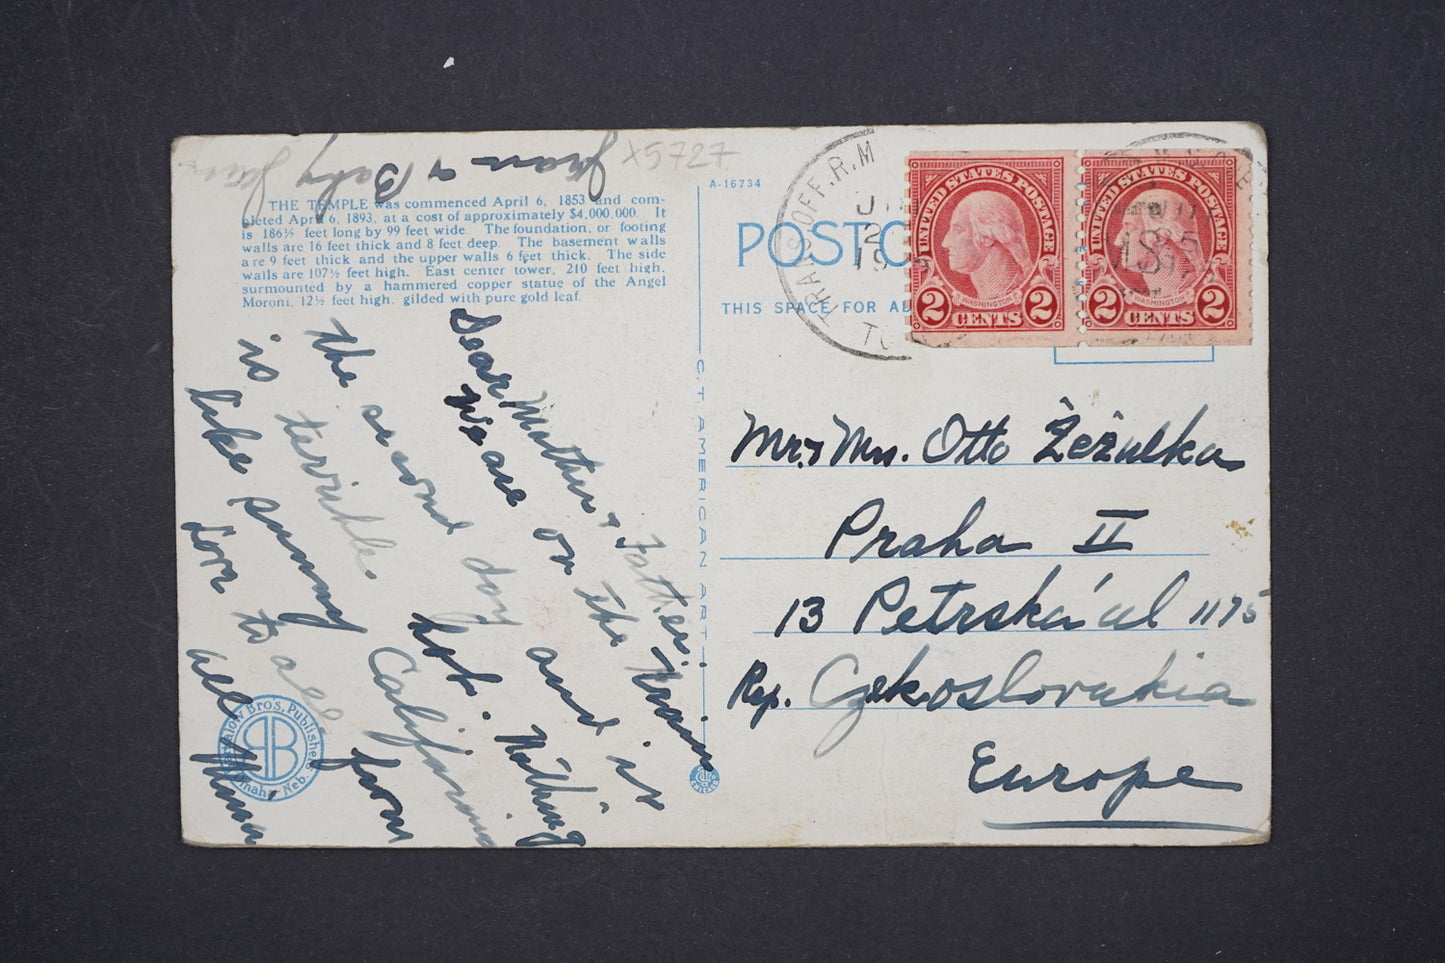 Jean & Baby Jean
X5727
THE TEMPLE was commenced April 6, 1853 and com-
pleted April 6, 1893, at a cost of approximately $4,000,000. It
is 186½ feet long by 99 feet wide. The foundation, or footing
walls are 16 feet thick and 8 feet deep. The basement walls
are 9 feet thick and the upper walls 6 feet thick. The side
walls are 107½ feet high. East center tower, 210 feet high,
surmounted by a hammered copper statue of the Angel
Moroni, 12½ feet high, gilded with pure gold leaf.
Dear Mother & Father:
We are on the train
the second day and it
is terrible hot. Nothing
like sunny California
Love to all from
all
A-16734
POSTC
THIS SPACE FOR AD
C. T. AMERICAN ART
Barkalow Bros, Publishers
Omaha Neb.
TRANS. OFF. R.M
2
19
UNITED STATES POSTAGE
WASHINGTON
2 CENTS 2
UNITED STATES POSTAGE
WASHINGTON
2 CENTS 2
Mr. & Mrs. Otto Žežulka
Praha II
13 Petrská ul 1175
Rep. Czekoslovakia
Europe